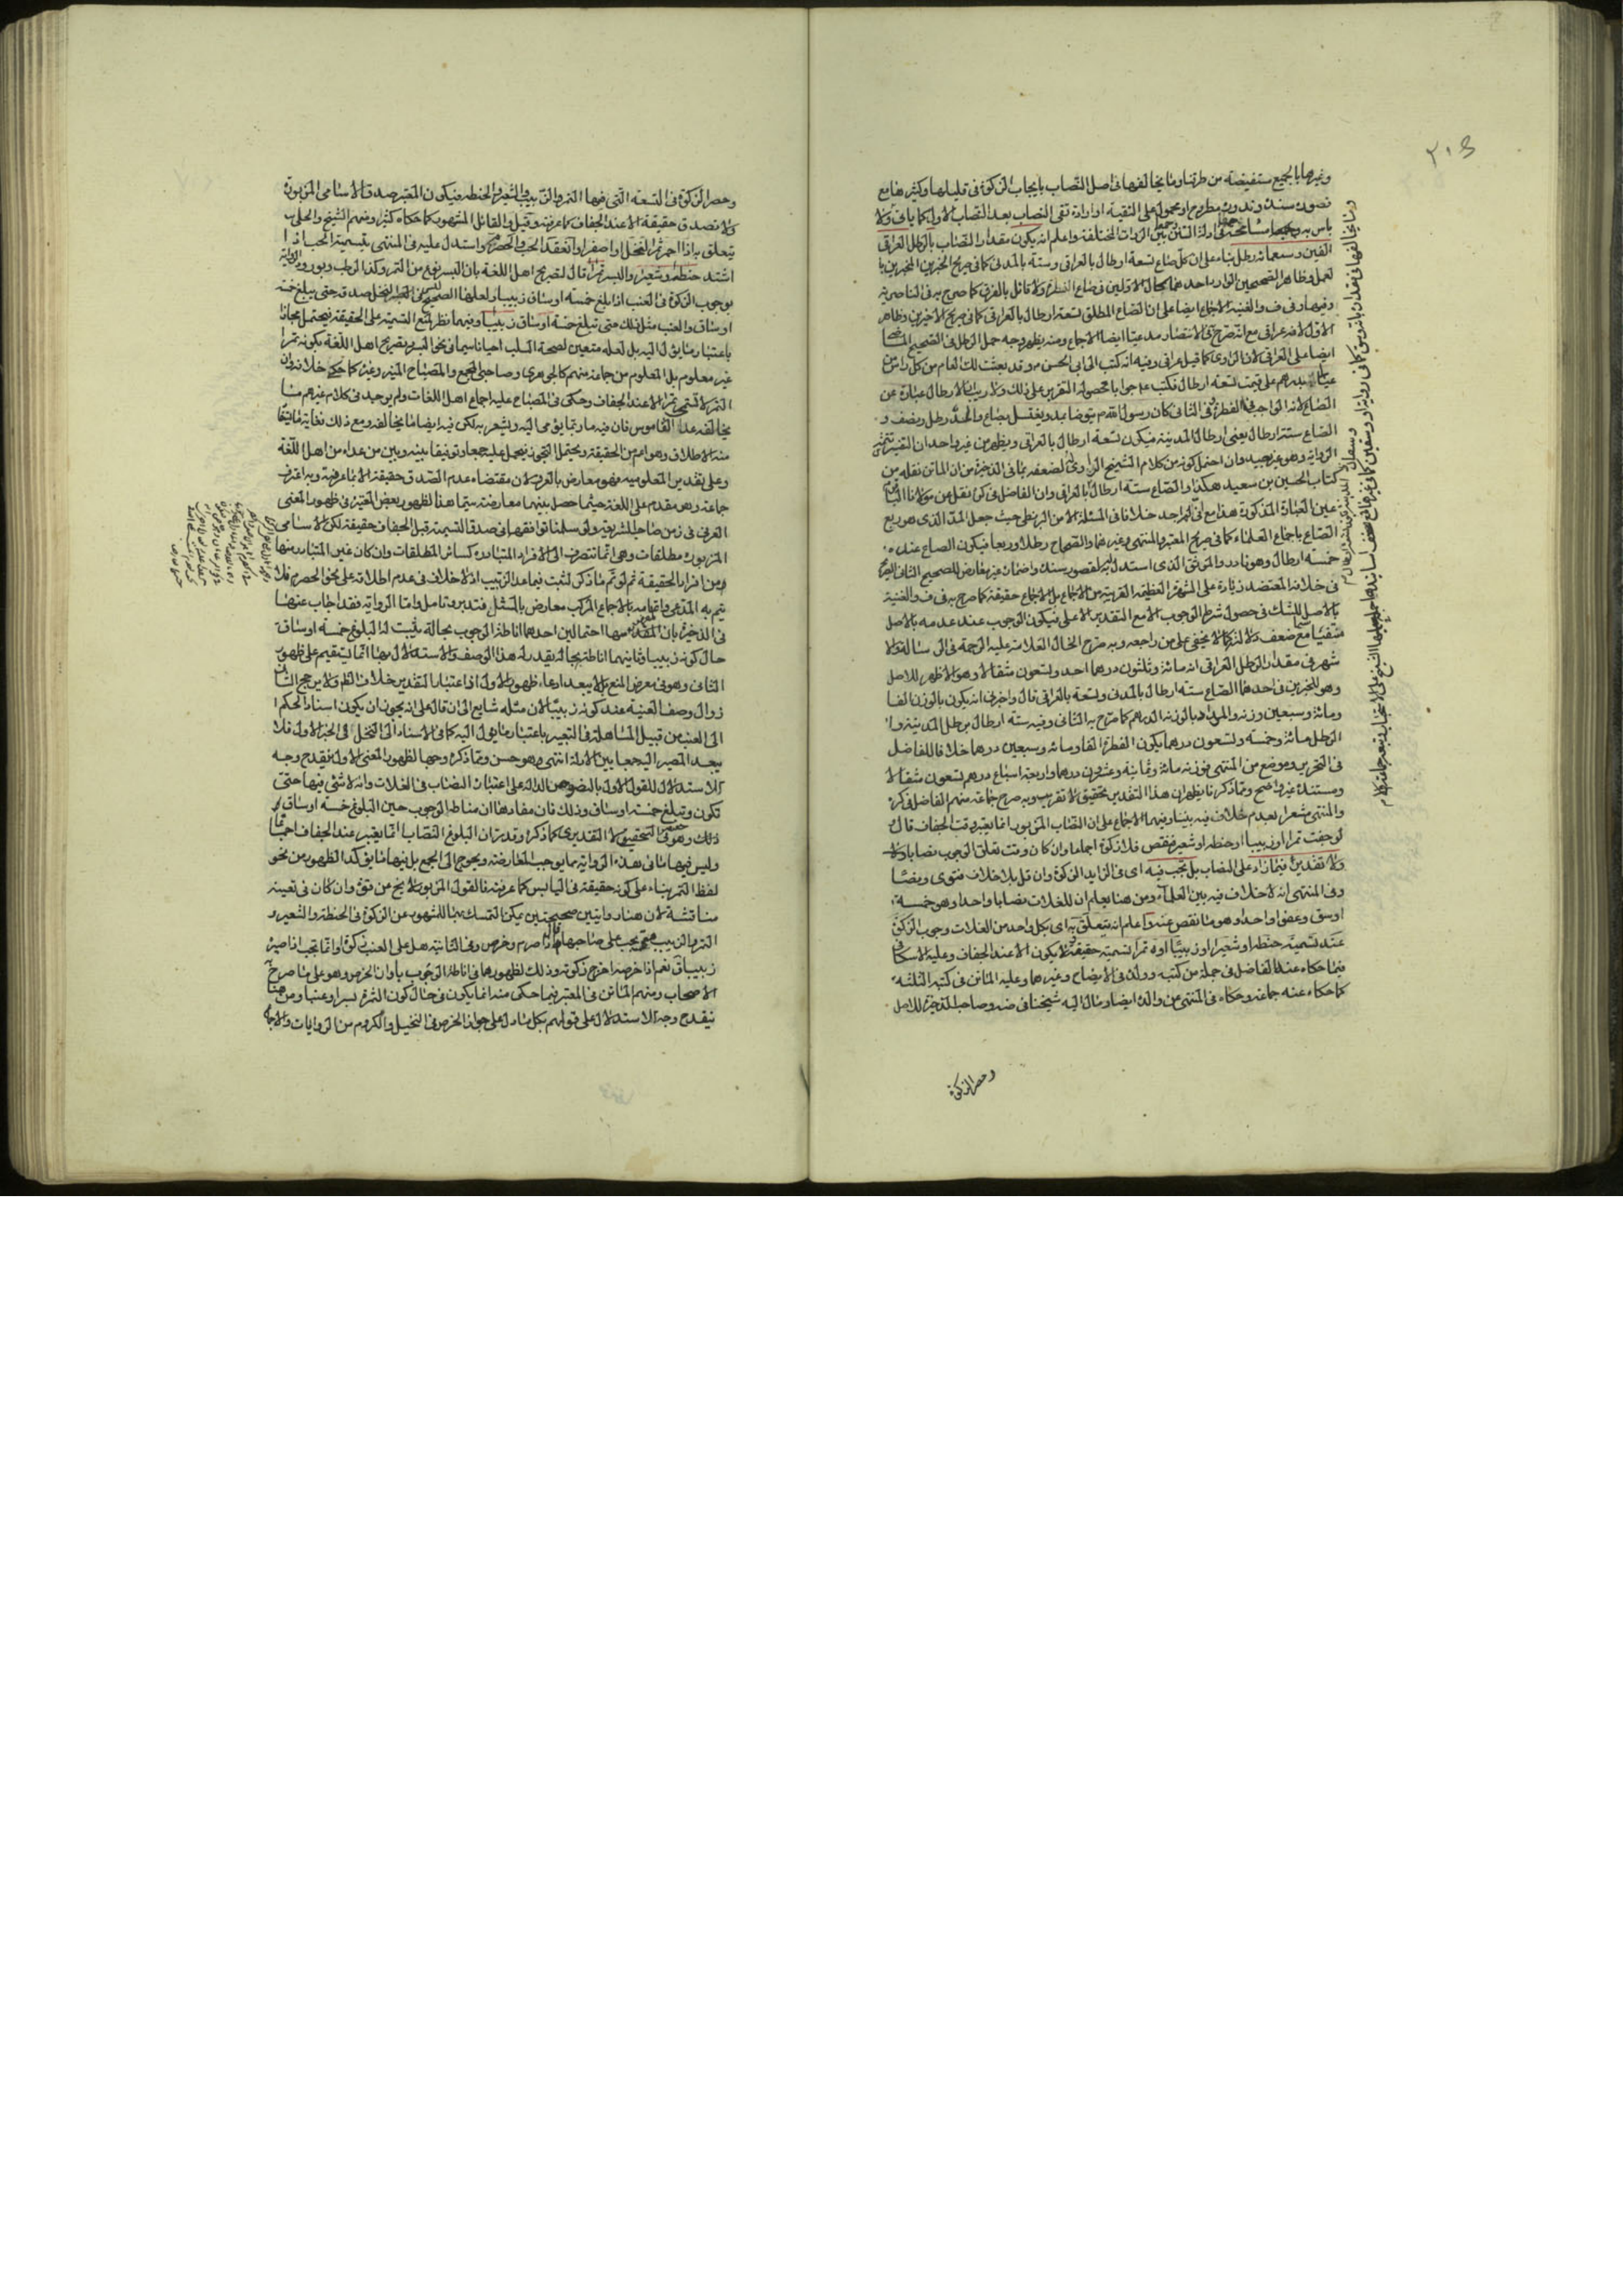 ٢٠٤
وغيرها بالجميع مستفيضة من طرقنا وما يخالفها في اصل النصاب بايجاب الزكوة في قليلها وكثيرها مع
قصوره سندا وندوره مطروح او محمول على التقية او ارادة نفي النصاب بعد النصاب الاول كما ياتي ولا
باس به واعلم انه يكون مقدار النصاب بالرطل العراقي
الفين وسبعمائة رطل بناء على ان كل صاع تسعة ارطال بالعراقي وستة بالمدني كما في صريح الخبرين المنجبرين با
لعمل وظاهر الصحيحين الوارد احدهما بحال الاولين في صاع الفطرة ولا قائل بالفرق كما صرح به في الناصرية
وفيها وفي ف والغنية الاجماع ايضا على ان الصاع المطلق تسعة ارطال بالعراقي كما في صريح الاخيرين وظاهر
الاول لانه عراقي مع انه صرح في الانتصار مدعيا ايضا الاجماع ومنه يظهر وجه حمل الرطل في الصحيح
ايضا على العراقي لان الراوي كما قيل عراقي وفيه انه كتب الى ابي الحسن ع وقد بعثت لك العام من كل راس من
عيالي بدرهم على قيمة تسعة ارطال فكتب ع جوابا محصوله التقرير على ذلك ولا ريب ان الارطال عبارة عن
الصاع لانه الواجب في الفطرة وفي الثاني كان رسول الله ص يتوضا بمد ويغتسل بصاع والمد رطل ونصف و
الصاع ستة ارطال يعني ارطال المدينة فيكون تسعة ارطال بالعراقي ويظهر من غير واحد ان التفسير تتمة
الرواية وهو غير بعيد وان احتمل كونه من كلام الشيخ او الراوي لضعفه بما في الذخيرة من ان الماتن نقله من
كتاب الحسين بن سعيد هكذا والصاع ستة ارطال بالمدني وان الفاضل في كره نقل عن مولانا الباقر
عين العبارة المذكورة هذا مع اني لم اجد خلافا في المسئلة الا من البزنطي حيث جعل المد الذي هو ربع
الصاع باجماع العلماء كما في صريح المعتبر والمنتهى وغيرهما والصحاح رطلا وربعا فيكون الصاع عنده
خمسة ارطال وهو نادر والموثق الذي استدل له به لقصوره سندا واضمار فيه يعارض للصحيح الثاني الصريح
في خلافه المعتضد زيادة على الشهرة العظيمة القريبة من الاجماع بل الاجماع حقيقة كما صرح به في ف والغنية
بالاصل للشك في حصول شرط الوجوب الا مع التقدير الاعلى فيكون الوجوب عند عدمه بالاصل
شهر في مقدار الرطل العراقي انه مائة وثلثون درهما احد وتسعون مثقالا وهو الاظهر للاصل
وهو للخبرين في احدهما الصاع ستة ارطال بالمدني وتسعة بالعراقي قال واخبرني انه يكون بالوزن الفا
ومائة وسبعين وزنة والمراد بالوزنة الدرهم كما صرح به الثاني وفيه ستة ارطال برطل المدينة وا
لرطل مائة وخمسة وتسعون درهما يكون الفطرة الفا ومائة وسبعين درهما خلافا للفاضل
في التحرير وموضع من المنتهى فوزنه مائة وثمانية وعشرون درهما واربعة اسباع درهم تسعون مثقالا
ومستنده غير واضح ومما ذكرنا يظهر ان هذا التقدير تحقيق لا تقريب وبه صرح جماعة منهم الفاضل في كره
والمنتهى مشعرا بعدم خلاف فيه بيننا وفيهما الاجماع على ان النصاب المزبور انما يعتبر وقت الجفاف قال
لو جفت تمرا او زبيبا او حنطة او شعيرا فنقص فلا زكوة اجماعا وان كان وقت تعلق الوجوب نصابا ولا
ولا تقدير فيما زاد على النصاب بل تجب فيه اي في الزايد الزكوة وان قل بلا خلاف فتوى ونصا
وفي المنتهى انه لا خلاف فيه بين العلماء ومن هنا يعلم ان للغلات نصابا واحدا وهو خمسة
اوسق وعفوا واحدا وهو ما نقص عنه واعلم انه يتعلق به اي بكل واحد من الغلات وجوب الزكوة
عند تسميته حنطة او شعيرا او زبيبا او تمرا تسمية حقيقة ولا يكون الا عند الجفاف وعليه الاسكافي
فيما حكاه عنه الفاضل في جملة من كتبه وولده في الايضاح وغيرهما وعليه الماتن في كتبه الثلثة
كما حكاه عنه جماعة وحكاه في المنتهى عن والده ايضا ومال اليه شيخنا في ضه وصاحب الذخيرة للاصل
وحصر الزكوة
وحصر الزكوة في التسعة التي فيها التمر والزبيب والشعير والحنطة فيكون المعتبر صدق الاسامي المزبورة
ولا تصدق حقيقة الا عند الجفاف كما عرفته وقيل والقائل المشهور كما حكاه كثير ومنهم الشيخ والحلي
يتعلق به اذا احمر ثمر النخل او اصفر او انعقد الحب والحصرم واستدل عليه في المنتهى بتسمية الحب اذا
اشتد حنطة وشعيرا والبسر تمرا قال لتصريح اهل اللغة بان البسر نوع من التمر وكذا الرطب وبورود الرواية
بوجوب الزكوة في العنب اذا بلغ خمسة اوساق زبيبا
اوساق والعنب مثل ذلك حتى تبلغ خمسة اوساق زبيبا وفيهما نظر لمنع التسمية على الحقيقة فيحتمل مجازا
باعتبار ما يؤل اليه بل لعله متعين لصحة السلب احيانا سيما في نحو البسر وتصريح اهل اللغة بكونه تمرا
غير معلوم بل المعلوم من جماعة منهم كالجوهري وصاحبي المجمع والمصباح المنير وغيره كما حكي خلافه وان
التمر لا تسمى تمرا الا عند الجفاف وحكى في المصباح عليه اجماع اهل اللغات ولم يوجد في كلام غيرهم ما
يخالفه عدا القاموس فان فيه ما ربما يؤمي اليه ويشعر به لكن فيه ايضا ما يخالفه ومع ذلك فغاية ما يستفاد
منه الاطلاق وهو اعم من الحقيقة ويحتمل التجوز فيحمل عليه جمعا وتوفيقا بينه وبين من عداه من اهل اللغة
وعلى تقدير المعلومية فهو معارض بالعرف لان مقتضاه عدم الصدق حقيقة الا بما عرفته وبه اعترف
جماعة وهو مقدم على اللغة حيثما حصل بينهما معارضة سيما هنا لظهور بعض المعتبرة في ظهور المعنى
العرفي في زمن صاحب الشريعة ولو سلمنا توافقهما في صدق التسمية قبل الجفاف حقيقة لكن الاسامي
المزبورة مطلقات وهي انما تنصرف الى الافراد المتبادرة كسائر المطلقات وان كان غير المتبادر منها
من افراد الحقيقة ثم لو تم ما ذكر لثبت فيما عدا الزبيب اذ لا خلاف في عدم اطلاقه على نحو الحصرم فلا
يتم به المدعى واتمامه بالاجماع المركب معارض بالمثل فتدبر وتامل واما الرواية فقد اجاب عنها
في الذخيرة بان المقصود منها احتمالين احدهما اناطة الوجوب بحالة يثبت له البلوغ خمسة اوساق
حال كونه زبيبا وثانيهما اناطته بحالة يقدر له هذا الوصف والاستدلال بها انما يستقيم على ظهور
الثاني وهو في معرض المنع بل لا يبعد ادعاء ظهور الاول اذ اعتبار التقدير خلاف الظ ولا يرجح الثاني
زوال وصف العنبية عند كونه زبيبا لان مثله شايع الى ان قال على انه يجوز ان يكون اسناد الحكم ا
الى العنب من قبيل المساهلة في التعبير باعتبار ما يؤل اليه كما في الاسناد الى النخل في الخبر الاول فلا
يبعد المصير اليه جمعا بين الادلة انتهى وهو حسن ومما ذكره وجها لظهور المعنى الاول ينقدح وجه
الاستدلال للقول الاول بالنصوص الدالة على اعتبار النصاب في الغلات وانه لا شئ فيها حتى
تكون وتبلغ خمسة اوساق وذلك فان مفادها ان مناط الوجوب حين البلوغ خمسة اوساق
ذلك وهو في التحقيق لا التقديري كما ذكر وقد مر ان البلوغ النصاب انما يعتبر عند الجفاف اجماعا
وليس فيها ما في هذه الرواية مما يوجب المعارضة ويحوج الى الجمع بل فيها ما يؤكد الظهور من نحو
لفظ التمر بناء على كونه حقيقة في اليابس كما عرفته فالقول المزبور لا يخ عن قوة وان كان في تعيينه
مناقشة لان هنا روايتين صحيحتين يمكن التمسك بهما للمشهور عن الزكوة في الحنطة والشعير و
التمر والزبيب متى تجب على صاحبها قال اذا صرم وخرص وفي الثانية هل على العنب زكوة او انما تجب اذا صيره
زبيبا قال نعم اذا خرصه اخرج زكوته وذلك لظهورهما في اناطة الوجوب باوان الخرص وهو على ما صرح به
الاصحاب ومنهم الماتن في المعتبر فيما حكي عنه انما يكون في حال كون الثمرة بسرا وعنبا ومن هنا
ينقدح وجه الاستدلال على قولهم بكل ما دل على جواز الخرص في النخيل والكروم من الروايات والاجماع